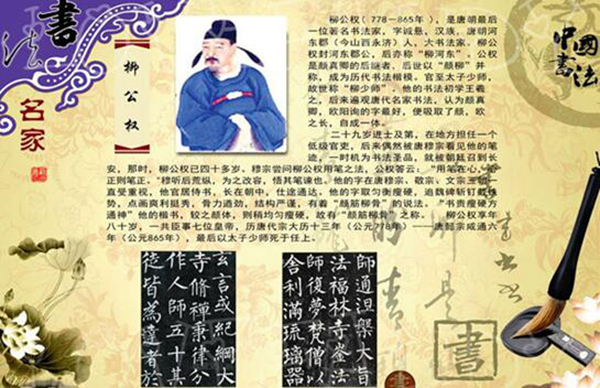 書
法
名家
柳公权
中國
書法
柳公权（778－865年），是唐朝最后
一位著名书法家，字诚悬，汉族，唐朝河
东郡（今山西永济）人，大书法家。柳公
权封河东郡公，后亦称“柳河东”。公权
是颜真卿的后继者，后世以“颜柳”并
称，成为历代书法楷模。官至太子少师，
故世称“柳少师”。他的书法初学王羲
之，后来遍观唐代名家书法，认为颜真
卿，欧阳询的字最好，便吸取了颜，欧
之长，自成一体。
二十九岁进士及第，在地方担任一个
低级官吏，后来偶然被唐穆宗看见他的笔
迹，一时机为书法圣品，就被朝廷召到长
安，那时，柳公权已四十多岁。穆宗尝问柳公权用笔之法，公权答云：“用笔在心，心
正则笔正。”穆听后荒纵，为之改容，悟其笔谏也。他的字在唐穆宗、敬宗、文宗三朝一
直受重视，他官居侍书，长在朝中，仕途通达。他的字取匀衡瘦硬，追魏碑斩钉截铁
势，点画爽利挺秀，骨力遒劲，结构严谨，有着“颜筋柳骨”的说法。“书贵瘦硬方
通神”他的楷书，较之颜体，则稍均匀瘦硬，故有“颜筋柳骨”之称。 柳公权享年
八十岁，一共臣事七位皇帝，历唐代宗大历十三年（公元778年）——唐懿宗咸通六
年（公元865年），最后以太子少师死于任上。
師通涅槃大旨
法福林寺崟法
師復夢梵僧以
舍利滿琉璃器
玄言或紀綱大
寺脩禪秉律分
作人師五十其
徒皆為達者於
書